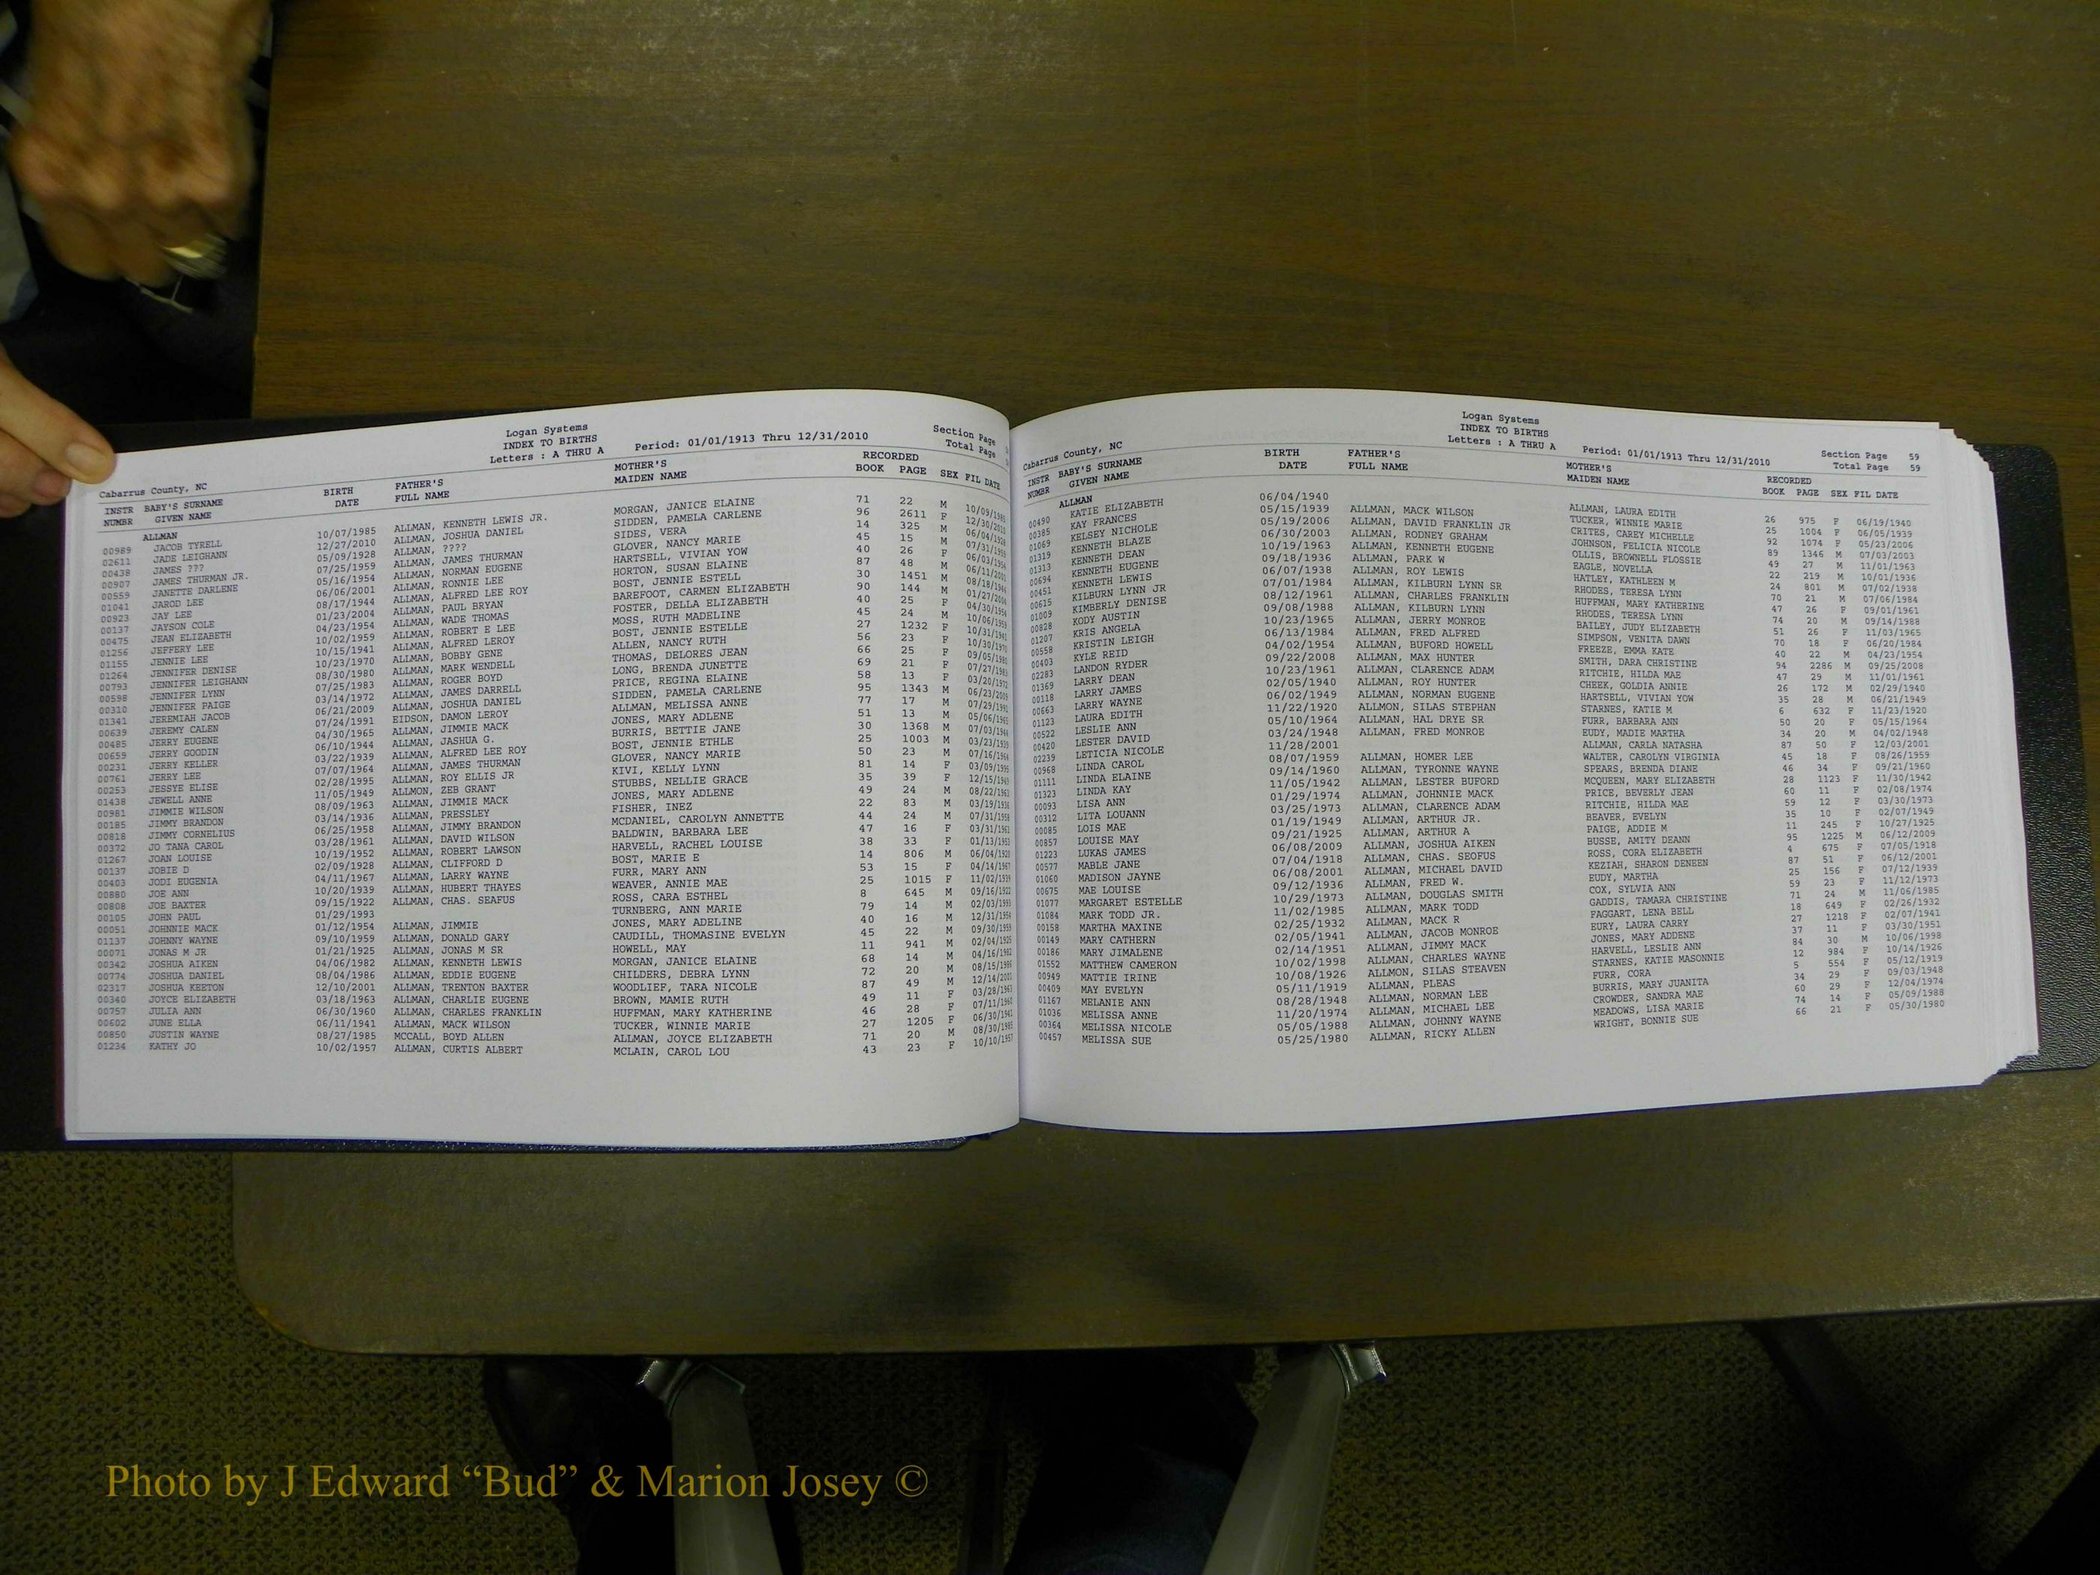 Logan Systems
INDEX TO BIRTHS
Letters : A THRU A
Period: 01/01/1913 Thru 12/31/2010
Section Page
Total Page
Cabarrus County, NC
INSTR BABY'S SURNAME BIRTH FATHER'S MOTHER'S RECORDED
NUMBR GIVEN NAME DATE FULL NAME MAIDEN NAME BOOK PAGE SEX FIL DATE
ALLMAN
00989 JACOB TYRELL 10/07/1985 ALLMAN, KENNETH LEWIS JR. MORGAN, JANICE ELAINE 71 22 M 10/09/1985
02611 JADE LEIGHANN 12/27/2010 ALLMAN, JOSHUA DANIEL SIDDEN, PAMELA CARLENE 96 2611 F 12/30/2010
00438 JAMES ??? 05/09/1928 ALLMAN, ???? SIDES, VERA 14 325 M 06/04/1928
00907 JAMES THURMAN JR. 07/25/1959 ALLMAN, JAMES THURMAN GLOVER, NANCY MARIE 45 15 M 07/31/1959
00559 JANETTE DARLENE 05/16/1954 ALLMAN, NORMAN EUGENE HARTSELL, VIVIAN YOW 40 26 F 06/03/1954
01041 JAROD LEE 06/06/2001 ALLMAN, RONNIE LEE HORTON, SUSAN ELAINE 87 48 M 06/11/2001
00923 JAY LEE 08/17/1944 ALLMAN, ALFRED LEE ROY BOST, JENNIE ESTELL 30 1451 M 08/18/1944
00137 JAYSON COLE 01/23/2004 ALLMAN, PAUL BRYAN BAREFOOT, CARMEN ELIZABETH 90 144 M 01/27/2004
00475 JEAN ELIZABETH 04/23/1954 ALLMAN, WADE THOMAS FOSTER, DELLA ELIZABETH 40 25 F 04/30/1954
01256 JEFFERY LEE 10/02/1959 ALLMAN, ROBERT E LEE MOSS, RUTH MADELINE 45 24 M 10/06/1959
01155 JENNIE LEE 10/15/1941 ALLMAN, ALFRED LEROY BOST, JENNIE ESTELLE 27 1232 F 10/31/1941
01264 JENNIFER DENISE 10/23/1970 ALLMAN, BOBBY GENE ALLEN, NANCY RUTH 56 23 F 10/30/1970
00793 JENNIFER LEIGHANN 08/30/1980 ALLMAN, MARK WENDELL THOMAS, DELORES JEAN 66 25 F 09/05/1980
00598 JENNIFER LYNN 07/25/1983 ALLMAN, ROGER BOYD LONG, BRENDA JUNETTE 69 21 F 07/27/1983
00310 JENNIFER PAIGE 03/14/1972 ALLMAN, JAMES DARRELL PRICE, REGINA ELAINE 58 13 F 03/20/1972
01341 JEREMIAH JACOB 06/21/2009 ALLMAN, JOSHUA DANIEL SIDDEN, PAMELA CARLENE 95 1343 M 06/23/2009
00639 JEREMY CALEN 07/24/1991 EIDSON, DAMON LEROY ALLMAN, MELISSA ANNE 77 17 M 07/29/1991
00485 JERRY EUGENE 04/30/1965 ALLMAN, JIMMIE MACK JONES, MARY ADLENE 51 13 M 05/06/1965
00659 JERRY GOODIN 06/10/1944 ALLMAN, JASHUA G. BURRIS, BETTIE JANE 30 1368 M 07/03/1944
00231 JERRY KELLER 03/22/1939 ALLMAN, ALFRED LEE ROY BOST, JENNIE ETHLE 25 1003 M 03/23/1939
00761 JERRY LEE 07/07/1964 ALLMAN, JAMES THURMAN GLOVER, NANCY MARIE 50 23 M 07/16/1964
00253 JESSYE ELISE 02/28/1995 ALLMAN, ROY ELLIS JR KIVI, KELLY LYNN 81 14 F 03/09/1995
01438 JEWELL ANNE 11/05/1949 ALLMON, ZEB GRANT STUBBS, NELLIE GRACE 35 39 F 12/15/1949
00981 JIMMIE WILSON 08/09/1963 ALLMAN, JIMMIE MACK JONES, MARY ADLENE 49 24 M 08/22/1963
00185 JIMMY BRANDON 03/14/1936 ALLMAN, PRESSLEY FISHER, INEZ 22 83 M 03/19/1936
00818 JIMMY CORNELIUS 06/25/1958 ALLMAN, JIMMY BRANDON MCDANIEL, CAROLYN ANNETTE 44 24 M 07/31/1958
00372 JO TANA CAROL 03/28/1961 ALLMAN, DAVID WILSON BALDWIN, BARBARA LEE 47 16 F 03/31/1961
01267 JOAN LOUISE 10/19/1952 ALLMAN, ROBERT LAWSON HARVELL, RACHEL LOUISE 38 33 F 01/13/1953
00137 JOBIE D 02/09/1928 ALLMAN, CLIFFORD D BOST, MARIE E 14 806 M 06/04/1928
00403 JODI EUGENIA 04/11/1967 ALLMAN, LARRY WAYNE FURR, MARY ANN 53 15 F 04/14/1967
00880 JOE ANN 10/20/1939 ALLMAN, HUBERT THAYES WEAVER, ANNIE MAE 25 1015 F 11/02/1939
00808 JOE BAXTER 09/15/1922 ALLMAN, CHAS. SEAFUS ROSS, CARA ESTHEL 8 645 M 09/16/1922
00105 JOHN PAUL 01/29/1993 TURNBERG, ANN MARIE 79 14 M 02/03/1993
00051 JOHNNIE MACK 01/12/1954 ALLMAN, JIMMIE JONES, MARY ADELINE 40 16 M 12/31/1954
01137 JOHNNY WAYNE 09/10/1959 ALLMAN, DONALD GARY CAUDILL, THOMASINE EVELYN 45 22 M 09/30/1959
00071 JONAS M JR 01/21/1925 ALLMAN, JONAS M SR HOWELL, MAY 11 941 M 02/04/1925
00342 JOSHUA AIKEN 04/06/1982 ALLMAN, KENNETH LEWIS MORGAN, JANICE ELAINE 68 14 M 04/16/1982
00774 JOSHUA DANIEL 08/04/1986 ALLMAN, EDDIE EUGENE CHILDERS, DEBRA LYNN 72 20 M 08/15/1986
02317 JOSHUA KEETON 12/10/2001 ALLMAN, TRENTON BAXTER WOODLIEF, TARA NICOLE 87 49 M 12/14/2001
00340 JOYCE ELIZABETH 03/18/1963 ALLMAN, CHARLIE EUGENE BROWN, MAMIE RUTH 49 11 F 03/28/1963
00757 JULIA ANN 06/30/1960 ALLMAN, CHARLES FRANKLIN HUFFMAN, MARY KATHERINE 46 28 F 07/11/1960
00602 JUNE ELLA 06/11/1941 ALLMAN, MACK WILSON TUCKER, WINNIE MARIE 27 1205 F 06/30/1941
00850 JUSTIN WAYNE 08/27/1985 MCCALL, BOYD ALLEN ALLMAN, JOYCE ELIZABETH 71 20 M 08/30/1985
01234 KATHY JO 10/02/1957 ALLMAN, CURTIS ALBERT MCLAIN, CAROL LOU 43 23 F 10/10/1957
Logan Systems
INDEX TO BIRTHS
Letters : A THRU A
Period: 01/01/1913 Thru 12/31/2010
Section Page 59
Total Page 59
Cabarrus County, NC
INSTR BABY'S SURNAME BIRTH FATHER'S MOTHER'S RECORDED
NUMBR GIVEN NAME DATE FULL NAME MAIDEN NAME BOOK PAGE SEX FIL DATE
ALLMAN
00490 KATIE ELIZABETH 06/04/1940 ALLMAN, LAURA EDITH 26 975 F 06/19/1940
00385 KAY FRANCES 05/15/1939 ALLMAN, MACK WILSON TUCKER, WINNIE MARIE 25 1004 F 06/05/1939
01069 KELSEY NICHOLE 05/19/2006 ALLMAN, DAVID FRANKLIN JR CRITES, CAREY MICHELLE 92 1074 F 05/23/2006
01319 KENNETH BLAZE 06/30/2003 ALLMAN, RODNEY GRAHAM JOHNSON, FELICIA NICOLE 89 1346 M 07/03/2003
01313 KENNETH DEAN 10/19/1963 ALLMAN, KENNETH EUGENE OLLIS, BROWNELL FLOSSIE 49 27 M 11/01/1963
00694 KENNETH EUGENE 09/18/1936 ALLMAN, PARK W EAGLE, NOVELLA 22 219 M 10/01/1936
00451 KENNETH LEWIS 06/07/1938 ALLMAN, ROY LEWIS HATLEY, KATHLEEN M 24 801 M 07/02/1938
00615 KILBURN LYNN JR 07/01/1984 ALLMAN, KILBURN LYNN SR RHODES, TERESA LYNN 70 21 M 07/06/1984
01009 KIMBERLY DENISE 08/12/1961 ALLMAN, CHARLES FRANKLIN HUFFMAN, MARY KATHERINE 47 26 F 09/01/1961
00828 KODY AUSTIN 09/08/1988 ALLMAN, KILBURN LYNN RHODES, TERESA LYNN 74 20 M 09/14/1988
01207 KRIS ANGELA 10/23/1965 ALLMAN, JERRY MONROE BAILEY, JUDY ELIZABETH 51 26 F 11/03/1965
00558 KRISTIN LEIGH 06/13/1984 ALLMAN, FRED ALFRED SIMPSON, VENITA DAWN 70 18 F 06/20/1984
00403 KYLE REID 04/02/1954 ALLMAN, BUFORD HOWELL FREEZE, EMMA KATE 40 22 M 04/23/1954
02283 LANDON RYDER 09/22/2008 ALLMAN, MAX HUNTER SMITH, DARA CHRISTINE 94 2286 M 09/25/2008
01369 LARRY DEAN 10/23/1961 ALLMAN, CLARENCE ADAM RITCHIE, HILDA MAE 47 29 M 11/01/1961
00118 LARRY JAMES 02/05/1940 ALLMAN, ROY HUNTER CHEEK, GOLDIA ANNIE 26 172 M 02/29/1940
00663 LARRY WAYNE 06/02/1949 ALLMAN, NORMAN EUGENE HARTSELL, VIVIAN YOW 35 28 M 06/21/1949
01123 LAURA EDITH 11/22/1920 ALLMON, SILAS STEPHAN STARNES, KATIE M 6 632 F 11/23/1920
00522 LESLIE ANN 05/10/1964 ALLMAN, HAL DRYE SR FURR, BARBARA ANN 50 20 F 05/15/1964
00420 LESTER DAVID 03/24/1948 ALLMAN, FRED MONROE EUDY, MADIE MARTHA 34 20 M 04/02/1948
02239 LETICIA NICOLE 11/28/2001 ALLMAN, CARLA NATASHA 87 50 F 12/03/2001
00968 LINDA CAROL 08/07/1959 ALLMAN, HOMER LEE WALTER, CAROLYN VIRGINIA 45 18 F 08/26/1959
01111 LINDA ELAINE 09/14/1960 ALLMAN, TYRONNE WAYNE SPEARS, BRENDA DIANE 46 34 F 09/21/1960
01323 LINDA KAY 11/05/1942 ALLMAN, LESTER BUFORD MCQUEEN, MARY ELIZABETH 28 1123 F 11/30/1942
00093 LISA ANN 01/29/1974 ALLMAN, JOHNNIE MACK PRICE, BEVERLY JEAN 60 11 F 02/08/1974
00312 LITA LOUANN 03/25/1973 ALLMAN, CLARENCE ADAM RITCHIE, HILDA MAE 59 12 F 03/30/1973
00085 LOIS MAE 01/19/1949 ALLMAN, ARTHUR JR. BEAVER, EVELYN 35 10 F 02/07/1949
00857 LOUISE MAY 09/21/1925 ALLMAN, ARTHUR A PAIGE, ADDIE M 11 245 F 10/27/1925
01223 LUKAS JAMES 06/08/2009 ALLMAN, JOSHUA AIKEN BUSSE, AMITY DEANN 95 1225 M 06/12/2009
00577 MABLE JANE 07/04/1918 ALLMAN, CHAS. SEOFUS ROSS, CORA ELIZABETH 4 675 F 07/05/1918
01060 MADISON JAYNE 06/08/2001 ALLMAN, MICHAEL DAVID KEZIAH, SHARON DENEEN 87 51 F 06/12/2001
00675 MAE LOUISE 09/12/1936 ALLMAN, FRED W. EUDY, MARTHA 25 156 F 07/12/1939
01077 MARGARET ESTELLE 10/29/1973 ALLMAN, DOUGLAS SMITH COX, SYLVIA ANN 59 23 F 11/12/1973
01084 MARK TODD JR. 11/02/1985 ALLMAN, MARK TODD GADDIS, TAMARA CHRISTINE 71 24 M 11/06/1985
00158 MARTHA MAXINE 02/25/1932 ALLMAN, MACK R FAGGART, LENA BELL 18 649 F 02/26/1932
00149 MARY CATHERN 02/05/1941 ALLMAN, JACOB MONROE EURY, LAURA CARRY 27 1218 F 02/07/1941
00186 MARY JIMALENE 02/14/1951 ALLMAN, JIMMY MACK JONES, MARY ADDENE 37 11 F 03/30/1951
01552 MATTHEW CAMERON 10/02/1998 ALLMAN, CHARLES WAYNE HARVELL, LESLIE ANN 84 30 M 10/06/1998
00949 MATTIE IRINE 10/08/1926 ALLMON, SILAS STEAVEN STARNES, KATIE MASONNIE 12 984 F 10/14/1926
00409 MAY EVELYN 05/11/1919 ALLMAN, PLEAS FURR, CORA 5 554 F 05/12/1919
01167 MELANIE ANN 08/28/1948 ALLMAN, NORMAN LEE BURRIS, MARY JUANITA 34 29 F 09/03/1948
01036 MELISSA ANNE 11/20/1974 ALLMAN, MICHAEL LEE CROWDER, SANDRA MAE 60 29 F 12/04/1974
00364 MELISSA NICOLE 05/05/1988 ALLMAN, JOHNNY WAYNE MEADOWS, LISA MARIE 74 14 F 05/09/1988
00457 MELISSA SUE 05/25/1980 ALLMAN, RICKY ALLEN WRIGHT, BONNIE SUE 66 21 F 05/30/1980
Photo by J Edward “Bud” & Marion Josey ©